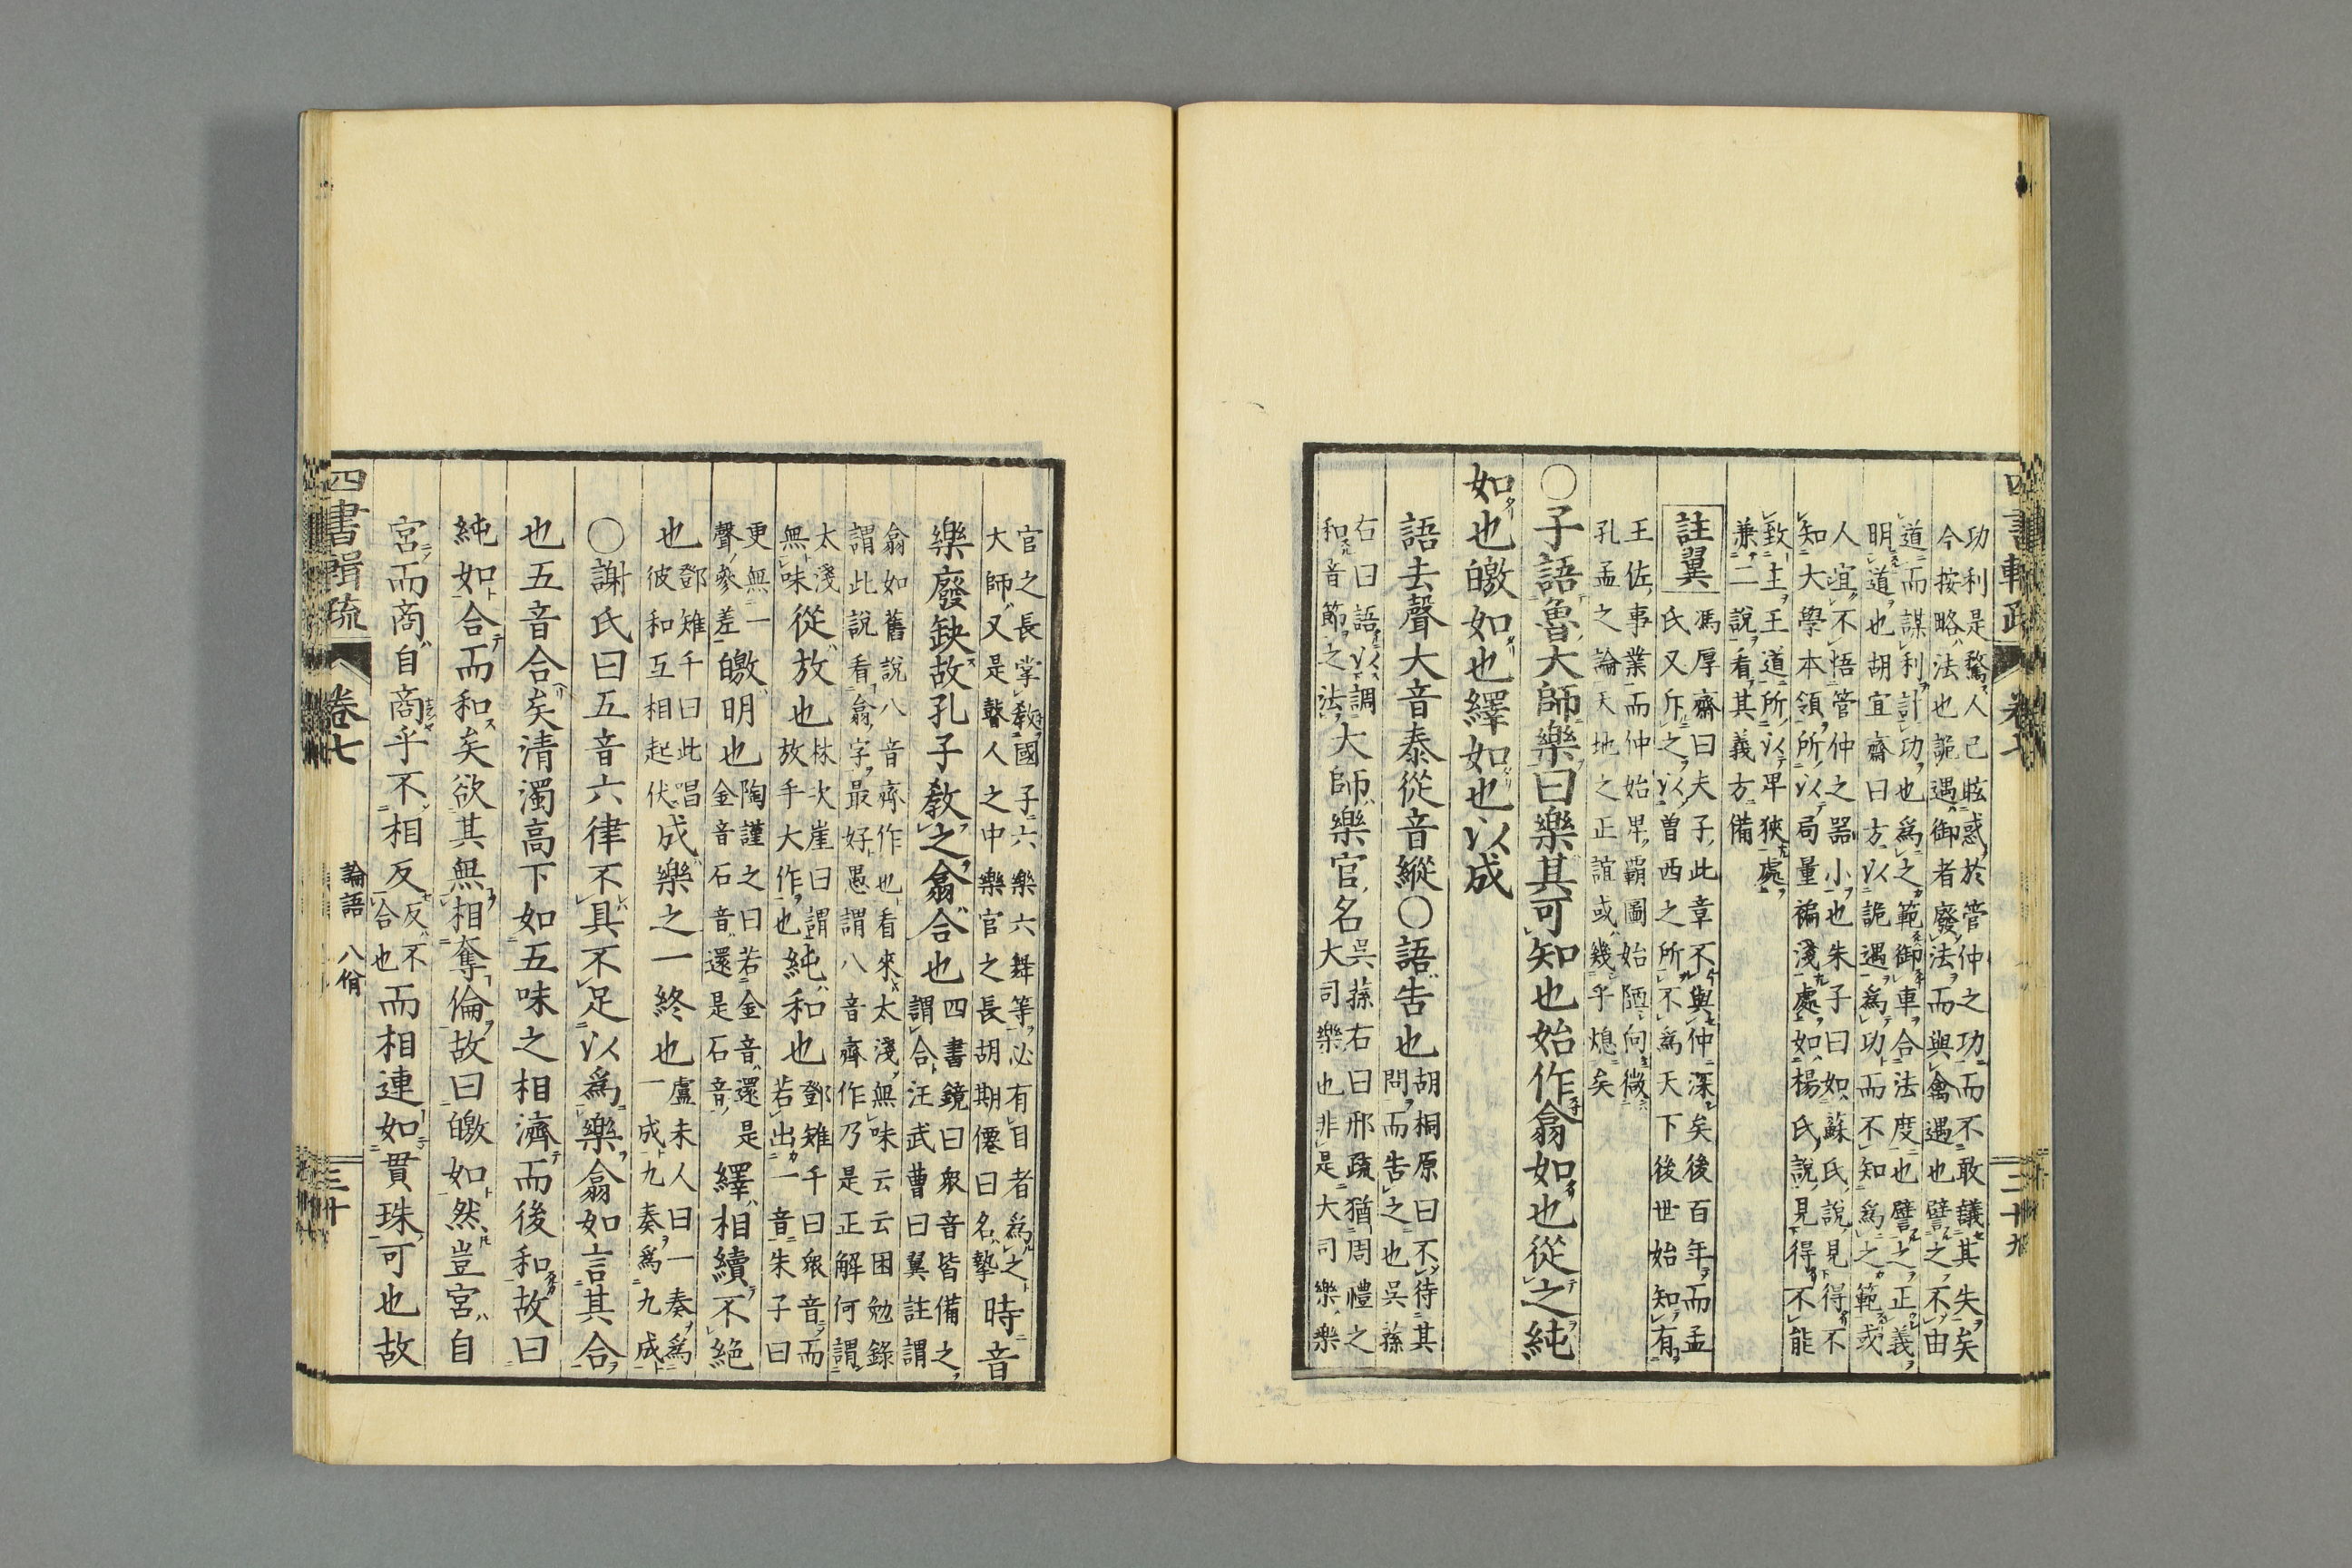 功利是騖人已眩惑於管仲之功而不敢議其失矣
今按略法也詭遇御者廢法而與禽遇也譬之不由
道而謀利計功也爲之範御車合法度也譬之正義
明道也胡宜齋曰方以詭遇爲功而不知爲之範或
人誼不悟管仲之器小也朱子曰如蘇氏說見得不
知大學本領所以局量褊淺處如楊氏說見得不能
致主王道所以卑狹處
兼二說看其義方備
註翼
馮厚齋曰夫子此章不與仲深矣後百年而孟
氏又斥之以曽西之所不爲天下後世始知有
王佐事業而仲始卑霸圖始陋向微
孔孟之論天地之正誼或幾乎熄矣
〇子語魯大師樂曰樂其可知也始作翕如也從之純
如也皦如也繹如也以成
語去聲大音泰從音縱〇語告也
胡桐原曰不待其
問而告之也吳蓀
右曰語以調
和音節之法
大師樂官名
吳蓀右曰邢疏猶周禮之
大司樂也非是大司樂樂
四書輯疏 卷七 二十九
官之長掌敎國子六樂六舞等必有目者爲之
大師又是瞽人之中樂官之長胡期僊曰名摯
時音
樂廢缺故孔子敎之翕合也
四書鏡曰衆音皆備之
謂合汪武曹曰翼註謂
翕如舊說八音齊作也看來太淺無味云云困勉錄
謂此說看翕字最好愚謂八音齊作乃是正解何謂
太淺
無味
從放也
林次崖曰謂
放手大作也
純和也
鄧雉千曰衆音而
若出一音朱子曰
更無一
聲參差
皦明也
陶謹之曰若金音還是
金音石音還是石音
繹相續不絕
也
鄧雉千曰此唱
彼和互相起伏
成樂之一終也
盧未人曰一奏爲
一成九奏爲九成
〇謝氏曰五音六律不具不足以爲樂翕如言其合
也五音合矣清濁高下如五味之相濟而後和故曰
純如合而和矣欲其無相奪倫故曰皦如然豈宮自
宮而商自商乎不相反
反不
合也
而相連如貫珠可也故
四書輯疏 卷七 論語 八佾 三十